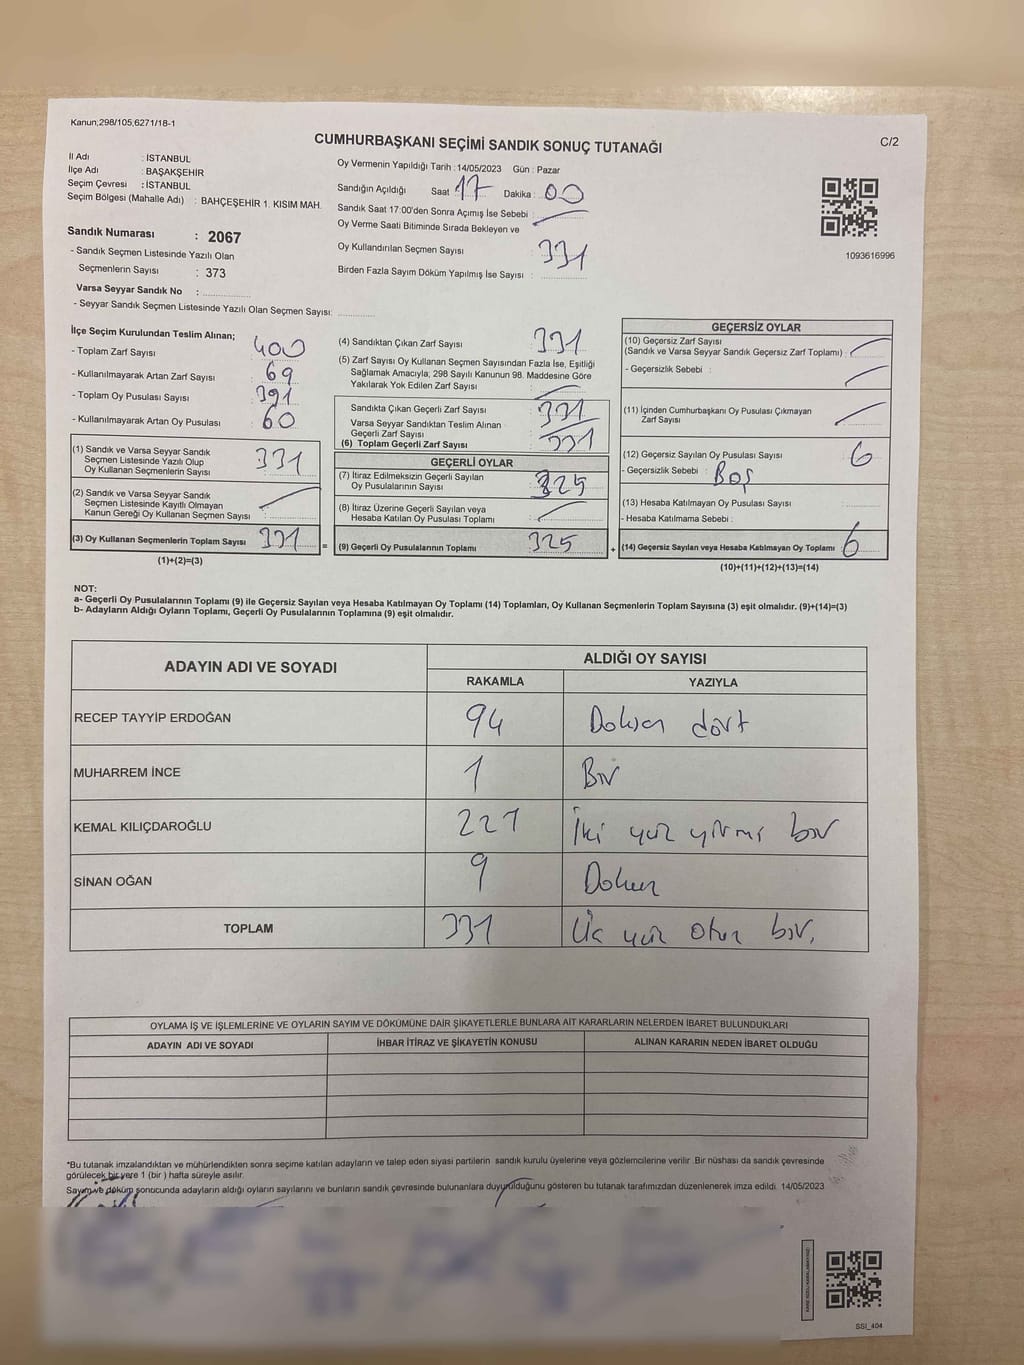 Kanun;298/105,6271/18-1
CUMHURBAŞKANI SEÇİMİ SANDIK SONUÇ TUTANAĞI
C/2
İl Adı : İSTANBUL
İlçe Adı : BAŞAKŞEHİR
Seçim Çevresi : İSTANBUL
Seçim Bölgesi (Mahalle Adı) : BAHÇEŞEHİR 1. KISIM MAH.
Sandık Numarası : 2067
- Sandık Seçmen Listesinde Yazılı Olan
Seçmenlerin Sayısı : 373
Varsa Seyyar Sandık No :
- Seyyar Sandık Seçmen Listesinde Yazılı Olan Seçmen Sayısı:
Oy Vermenin Yapıldığı Tarih : 14/05/2023 Gün : Pazar
Sandığın Açıldığı Saat 17 Dakika : 00
Sandık Saat 17:00'den Sonra Açımış İse Sebebi :
Oy Verme Saati Bitiminde Sırada Bekleyen ve
Oy Kullandırılan Seçmen Sayısı 331
Birden Fazla Sayım Döküm Yapılmış İse Sayısı :
1093616996
İlçe Seçim Kurulundan Teslim Alınan;
- Toplam Zarf Sayısı : 400
- Kullanılmayarak Artan Zarf Sayısı : 69
- Toplam Oy Pusulası Sayısı : 391
- Kullanılmayarak Artan Oy Pusulası : 60
(1) Sandık ve Varsa Seyyar Sandık
Seçmen Listesinde Yazılı Olup
Oy Kullanan Seçmenlerin Sayısı 331
(2) Sandık ve Varsa Seyyar Sandık
Seçmen Listesinde Kayıtlı Olmayan
Kanun Gereği Oy Kullanan Seçmen Sayısı
(3) Oy Kullanan Seçmenlerin Toplam Sayısı 331 =
(1)+(2)=(3)
(4) Sandıktan Çıkan Zarf Sayısı 331
(5) Zarf Sayısı Oy Kullanan Seçmen Sayısından Fazla İse, Eşitliği
Sağlamak Amacıyla; 298 Sayılı Kanunun 98. Maddesine Göre
Yakılarak Yok Edilen Zarf Sayısı
Sandıkta Çıkan Geçerli Zarf Sayısı 331
Varsa Seyyar Sandıktan Teslim Alınan
Geçerli Zarf Sayısı
(6) Toplam Geçerli Zarf Sayısı 331
GEÇERLİ OYLAR
(7) İtiraz Edilmeksizin Geçerli Sayılan
Oy Pusulalarının Sayısı 325
(8) İtiraz Üzerine Geçerli Sayılan veya
Hesaba Katılan Oy Pusulası Toplamı
(9) Geçerli Oy Pusulalarının Toplamı 325 +
GEÇERSİZ OYLAR
(10) Geçersiz Zarf Sayısı
(Sandık ve Varsa Seyyar Sandık Geçersiz Zarf Toplamı) :
- Geçersizlik Sebebi :
(11) İçinden Cumhurbaşkanı Oy Pusulası Çıkmayan
Zarf Sayısı
(12) Geçersiz Sayılan Oy Pusulası Sayısı 6
- Geçersizlik Sebebi : Boş
(13) Hesaba Katılmayan Oy Pusulası Sayısı
- Hesaba Katılmama Sebebi :
(14) Geçersiz Sayılan veya Hesaba Katılmayan Oy Toplamı 6
(10)+(11)+(12)+(13)=(14)
NOT:
a- Geçerli Oy Pusulalarının Toplamı (9) ile Geçersiz Sayılan veya Hesaba Katılmayan Oy Toplamı (14) Toplamları, Oy Kullanan Seçmenlerin Toplam Sayısına (3) eşit olmalıdır. (9)+(14)=(3)
b- Adayların Aldığı Oyların Toplamı, Geçerli Oy Pusulalarının Toplamına (9) eşit olmalıdır.
ADAYIN ADI VE SOYADI
ALDIĞI OY SAYISI
RAKAMLA YAZIYLA
RECEP TAYYİP ERDOĞAN 94 Doksan dört
MUHARREM İNCE 1 Bir
KEMAL KILIÇDAROĞLU 221 İki yüz yirmi bir
SİNAN OĞAN 9 Dokuz
TOPLAM 331 Üç yüz otuz bir.
OYLAMA İŞ VE İŞLEMLERİNE VE OYLARIN SAYIM VE DÖKÜMÜNE DAİR ŞİKAYETLERLE BUNLARA AİT KARARLARIN NELERDEN İBARET BULUNDUKLARI
ADAYIN ADI VE SOYADI İHBAR İTİRAZ VE ŞİKAYETİN KONUSU ALINAN KARARIN NEDEN İBARET OLDUĞU
*Bu tutanak imzalandıktan ve mühürlendikten sonra seçime katılan adayların ve talep eden siyasi partilerin sandık kurulu üyelerine veya gözlemcilerine verilir .Bir nüshası da sandık çevresinde
görülecek bir yere 1 (bir ) hafta süreyle asılır.
Sayım ve döküm sonucunda adayların aldığı oyların sayılarını ve bunların sandık çevresinde bulunanlara duyurulduğunu gösteren bu tutanak tarafımızdan düzenlenerek imza edildi. 14/05/2023
SSİ_404